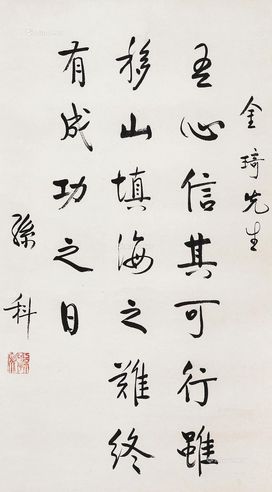 金琦先生
吾心信其可行雖
移山填海之難終
有成功之日
孫科